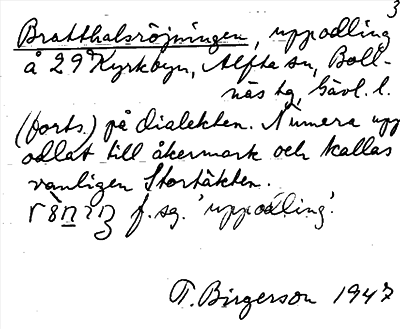 3
Bratthalsröjningen, uppodling
å 29 Kyrkbyn, Alfta sn, Boll-
näs tg, Gävl. l.
(forts.) på dialekten. Numera upp
odlat till åkermark och kallas
vanligen Stortäkten.
f. sg. 'uppodling'.
T. Birgerson 1947